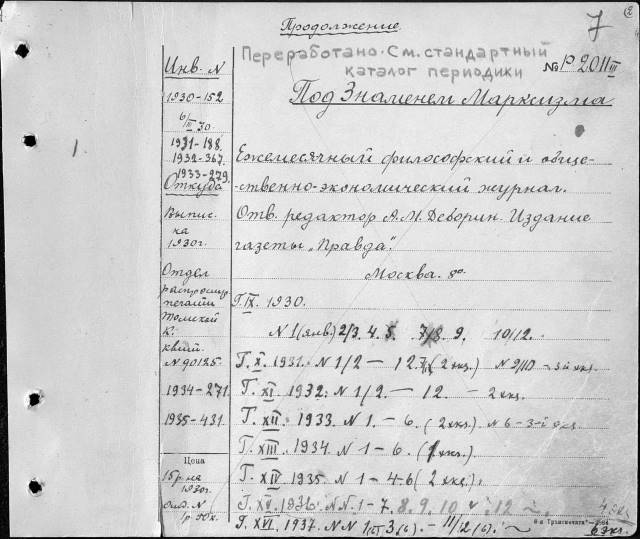 Продолжение.
7
2
Переработано. См. стандартный
каталог периодики
№ Р 2011 III
Инв. N
1930-152
6/III 30
1931-188.
1932-367.
1933-279.
Откуда
Выпис.
ка
1930г.
Отдел
распростр
печати
Томской
к.
квит.
N 90125.
1934-271.
1935-431.
Цена
15 р. на
1930г.
Под Знаменем Марксизма
Ежемесячный философский и обще-
-ственно-экономический журнал.
Отв. редактор А. М. Деборин. Издание
газеты „Правда“.
Москва. 8º
Г. IX. 1930.
N 1 (янв) 2/3. 4. 5. 7/8. 9. 10/12.
Г. X. 1931. N 1/2 — 12. (2 экз.) N 9/10 - 3 й экз.
Г. XI. 1932. N 1/2. — 12. — 2 экз.
Г. XII. 1933. N 1. - 6. (2 экз.). N 6 - 3-й экз.
Г. XIII. 1934. N 1 - 6.
Г. XIV 1935. N 1 - 4-6 (2 экз.).
Г. XV. 1936. N N. 1 - 7. 8. 9. 10 12
Г. XVI. 1937. N N 1 3 (6). - 11/12 (6).
6 экз.